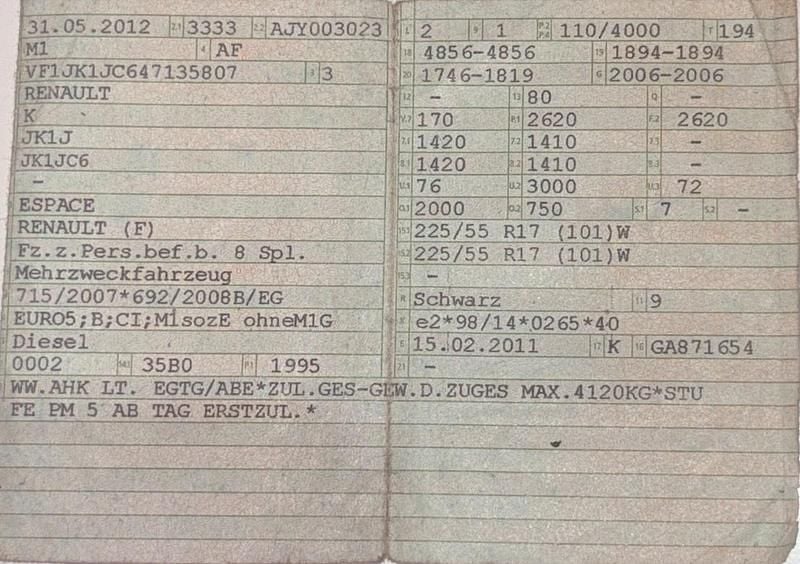 31.05.2012 2.1 3333 2.2 AJY003023
M1 4 AF
VF1JK1JC647135807 3 3
RENAULT
K
JK1J
JK1JC6
–
ESPACE
RENAULT (F)
Fz.z.Pers.bef.b. 8 Spl.
Mehrzweckfahrzeug
715/2007*692/2008B/EG
EURO5;B;CI;M1sozE ohneM1G
Diesel
0002 35B0 P.1 1995
L 2 9 1 P.2 P.4 110/4000 T 194
18 4856-4856 19 1894-1894
20 1746-1819 G 2006-2006
12 – 13 80 Q –
V.7 170 F.1 2620 F.2 2620
7.1 1420 7.2 1410 7.3 –
8.1 1420 8.2 1410 8.3 –
U.1 76 U.2 3000 U.3 72
O.1 2000 O.2 750 S.1 7 S.2 –
15.1 225/55 R17 (101)W
15.2 225/55 R17 (101)W
15.3 –
R Schwarz 11 9
K e2*98/14*0265*40
6 15.02.2011 17 K 16 GA871654
21 –
WW.AHK LT. EGTG/ABE*ZUL.GES-GEW.D.ZUGES MAX.4120KG*STU
FE PM 5 AB TAG ERSTZUL.*